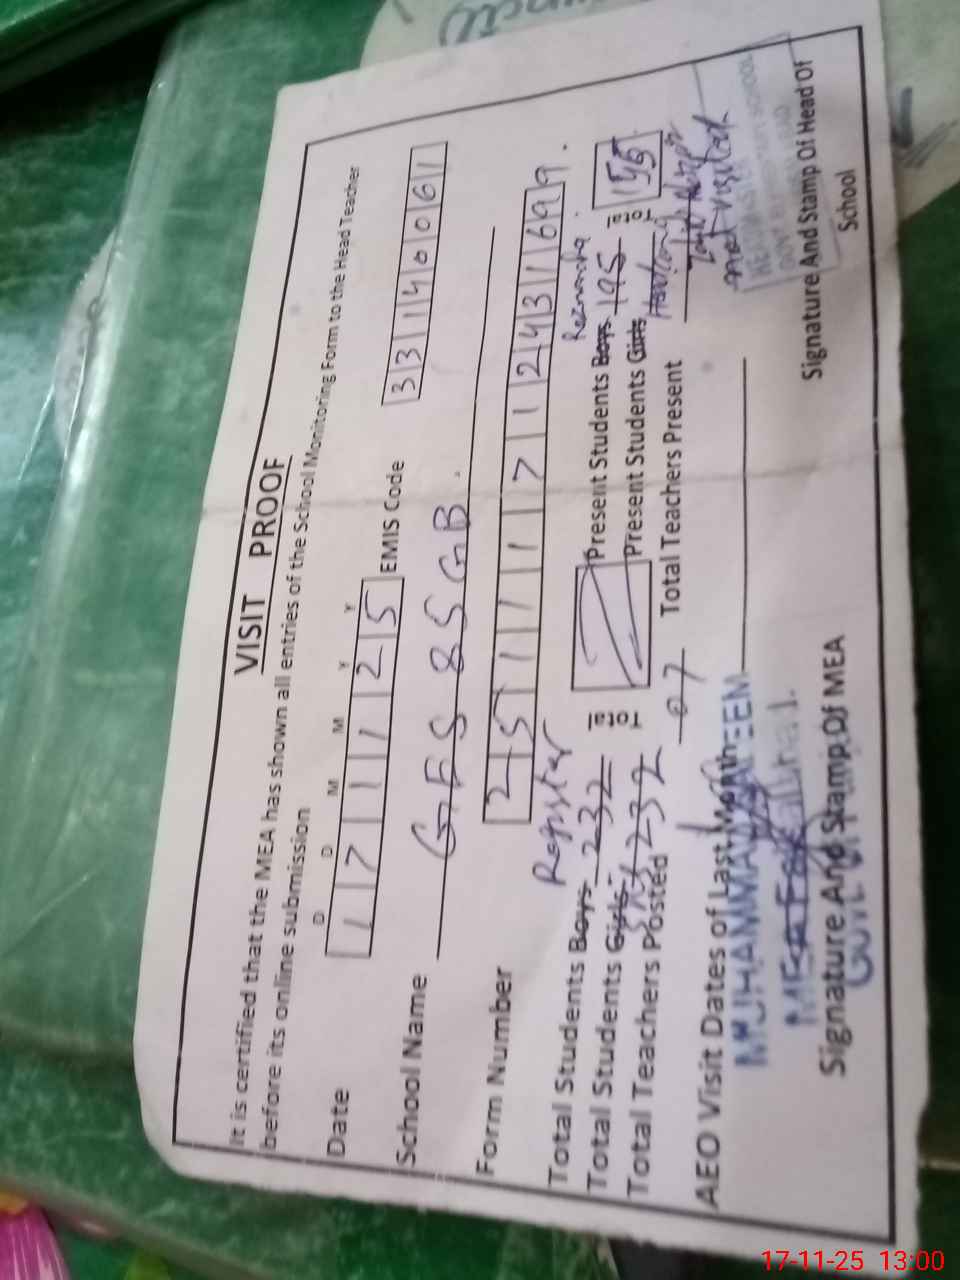 VISIT PROOF
It is certified that the MEA has shown all entries of the School Monitoring Form to the Head Teacher
before its online submission
D D M M Y Y
Date 1 7 1 1 2 5 EMIS Code 3 3 1 4 0 0 6 1
School Name GES 85 GB.
Form Number 2 5 1 1 1 7 1 2 4 3 1 6 9 9.
Register
Total Students Boys 232 Total Present Students Boys 195 Total 155
Total Students Girls 232 Present Students Girls
Total Teachers Posted 07 Total Teachers Present
AEO Visit Dates of Last Month not visited.
MUHAMMAD
Signature And Stamp Of MEA
Signature And Stamp Of Head Of
School
17-11-25 13:00